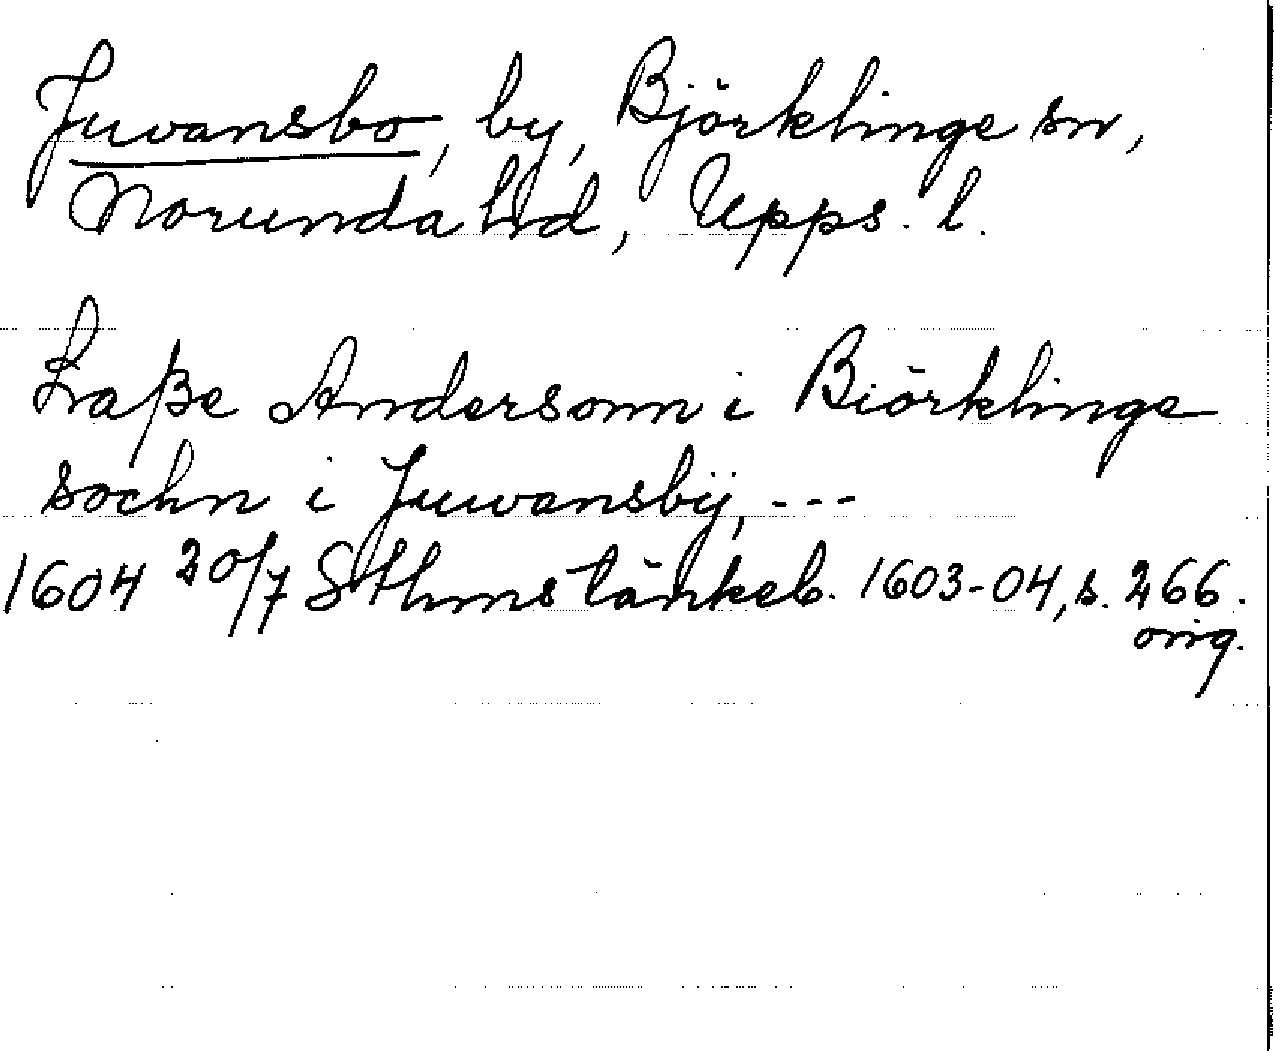 Juvansbo, by, Björklinge sn,
Norunda hd, Upps. l.
Laße Andersonn i Biörklinge
sochn i Juvansbÿ, ---
1604 20/7 Sthms tänkeb. 1603-04, s. 266.
orig.